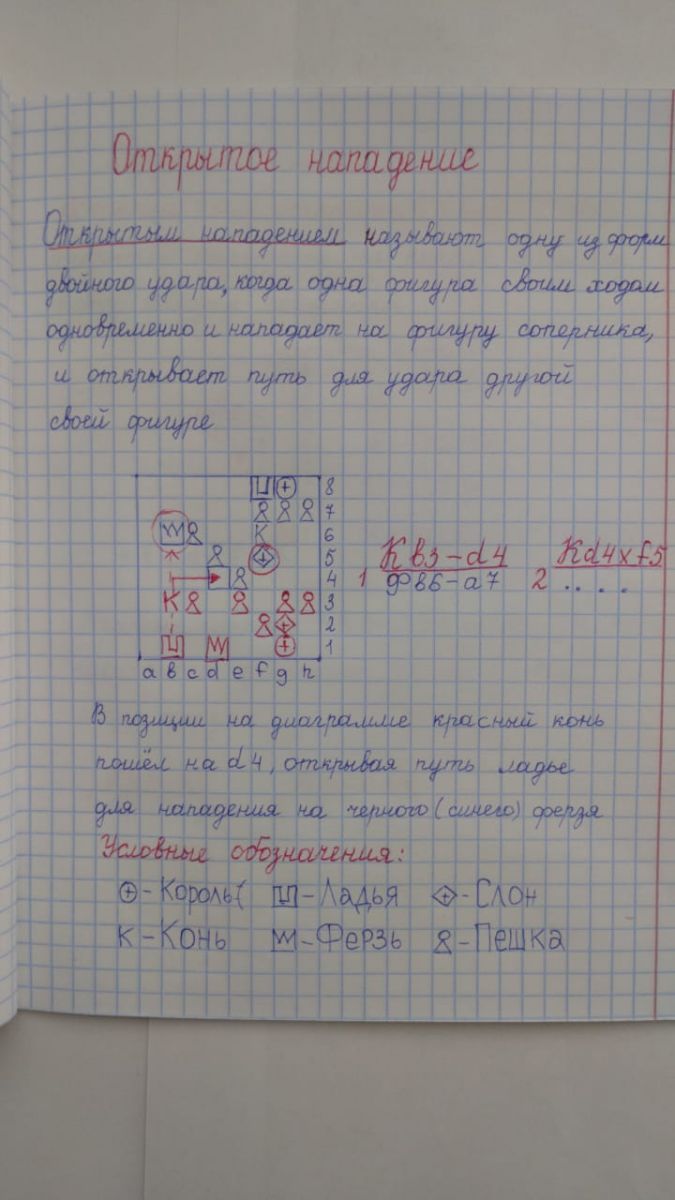 Открытое нападение
Открытым нападением называют одну из форм
двойного удара, когда одна фигура своим ходом
одновременно и нападает на фигуру соперника,
и открывает путь для удара другой
своей фигуре
8
7
К 6
5
4
К 3
2
1
a b c d e f g h
1 Кb3-d4 2 Кd4xf5
Фb6-a7 ....
В позиции на диаграмме красный конь
пошёл на d4, открывая путь ладье
для нападения на черного (синего) ферзя
Условные обозначения:
- Король( - Ладья - Слон
К - Конь - Ферзь - Пешка